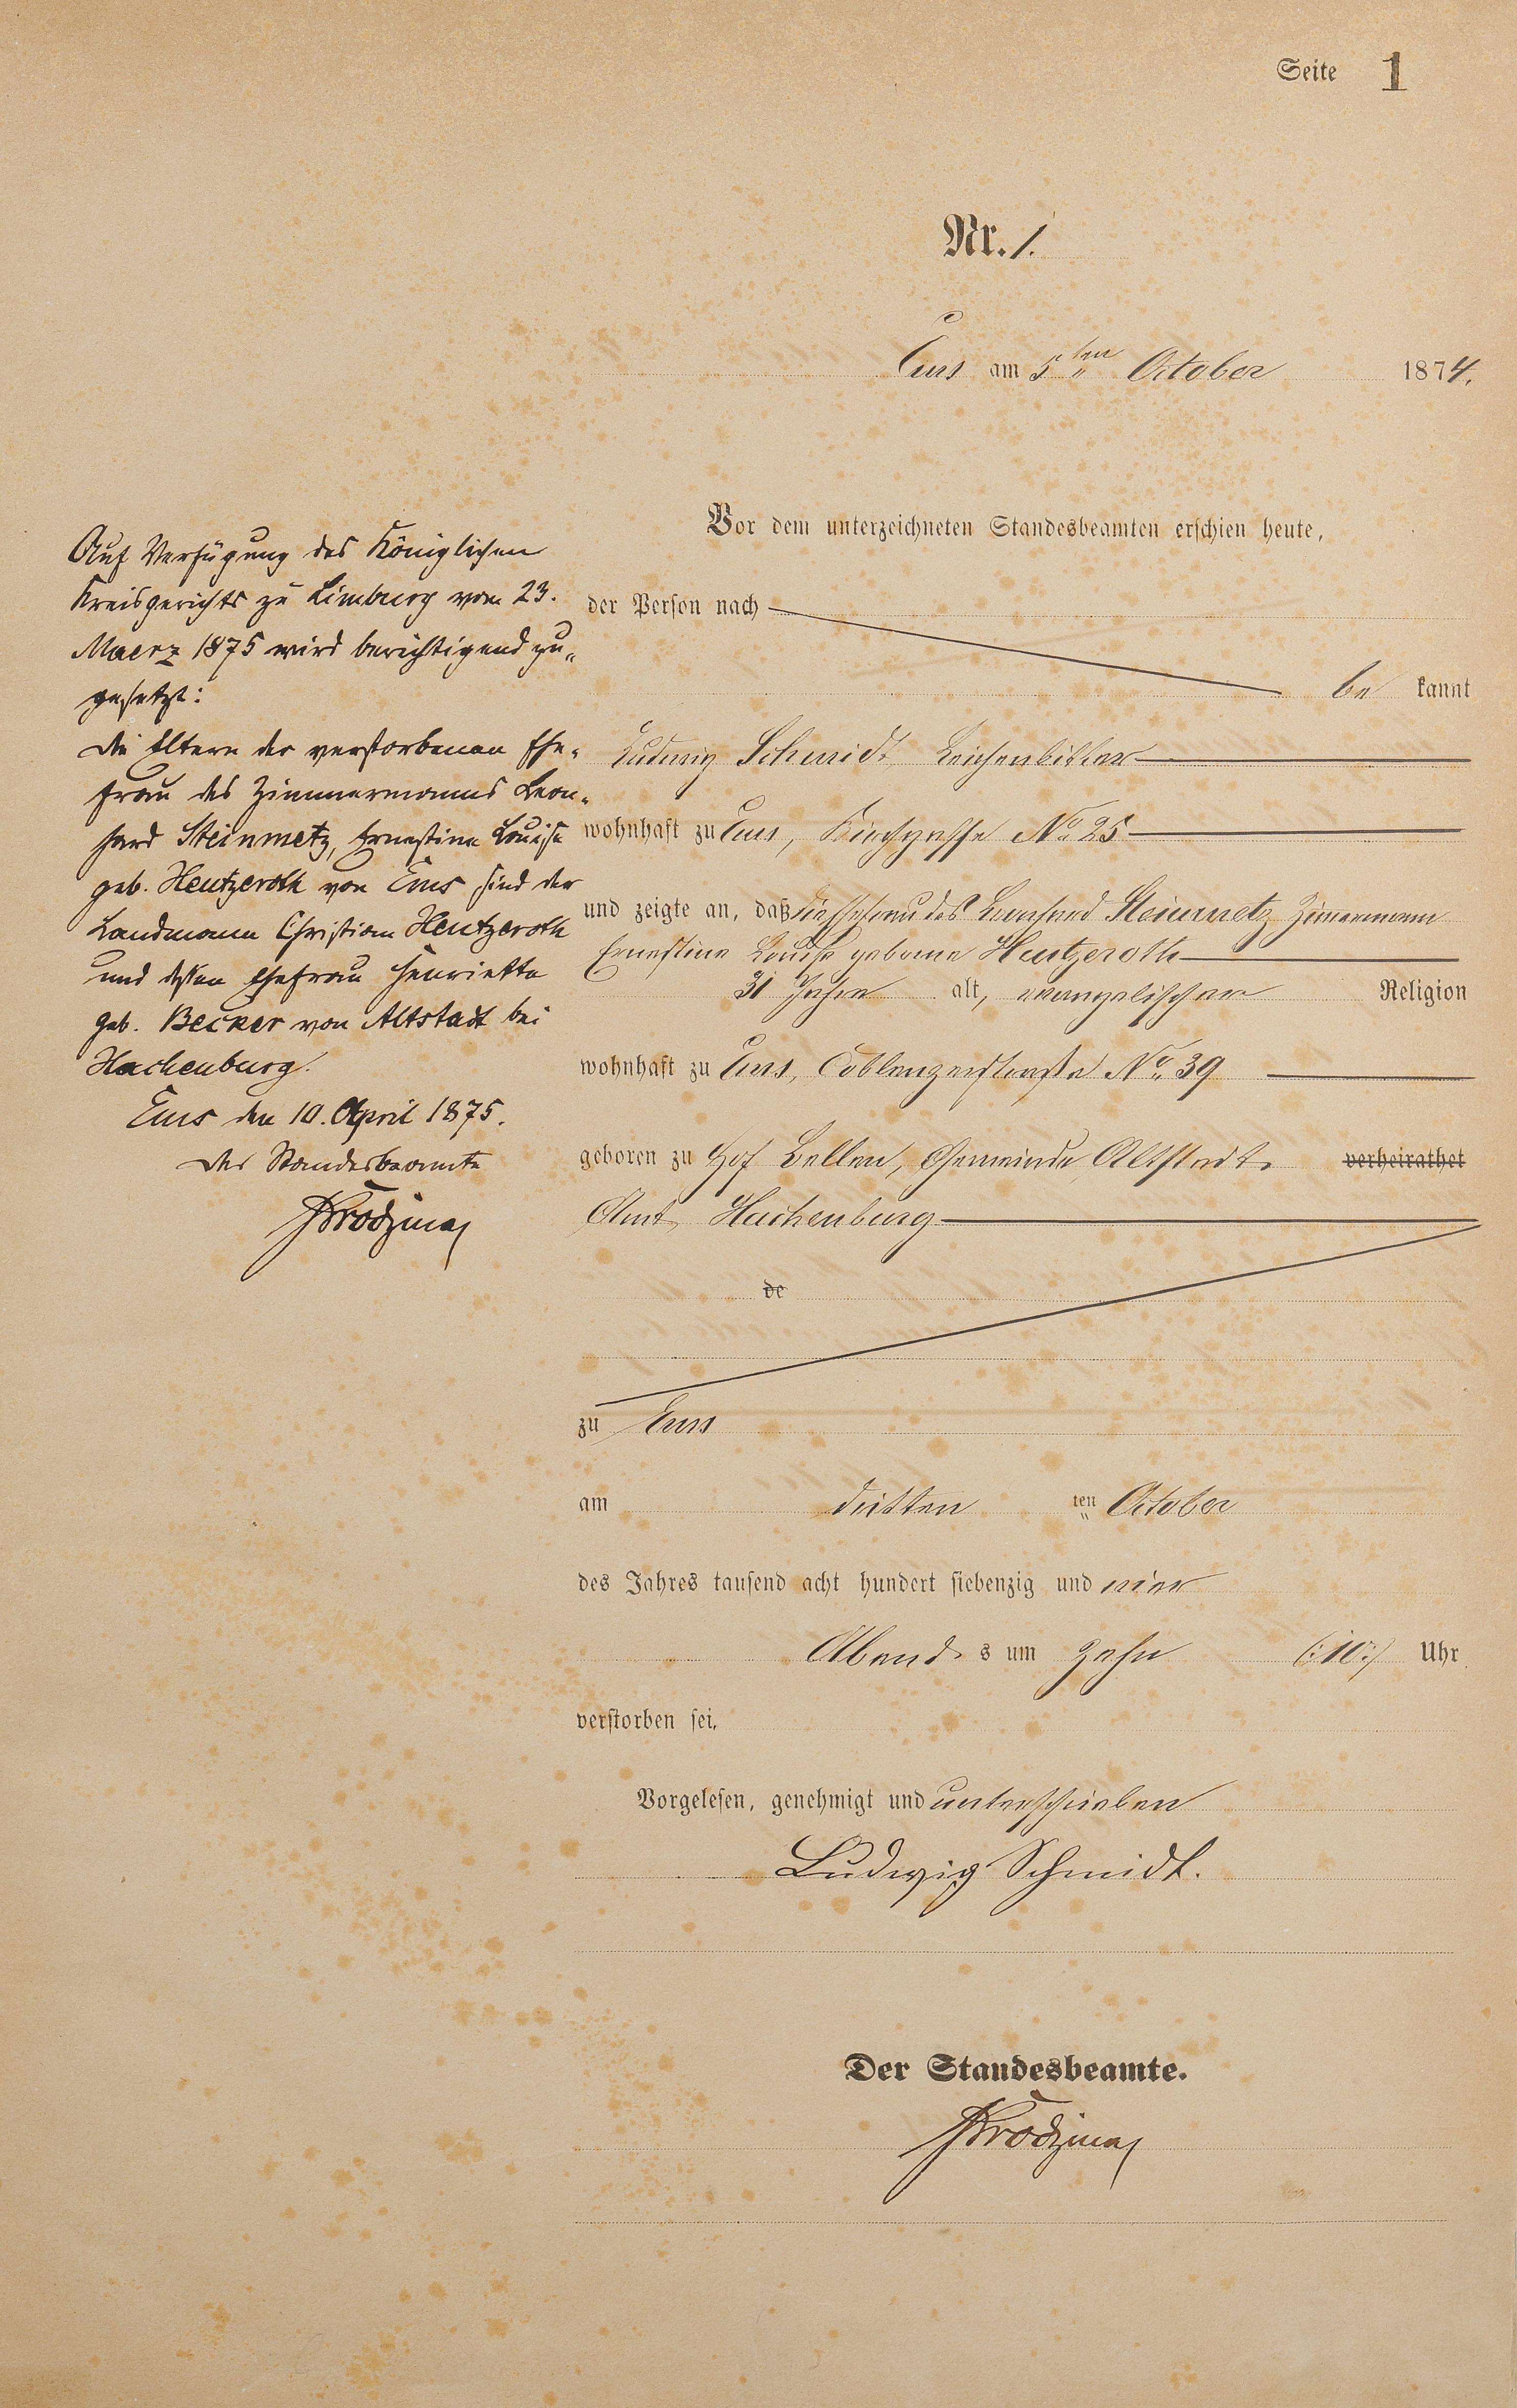 Seite 1
Nr. 1.
Ems am 5ten October 1874.
Vor dem unterzeichneten Standesbeamten erschien heute,
der Person nach
be kannt
Ludwig Schmidt Leichenbitter
wohnhaft zu Ems, Kirchgasse No 25
und zeigte an, daß die Ehefrau des Leonhard Steinmetz Zimmermann
Ernestine Louise geborne Heutzeroth
31 Jahre alt, evangelischer Religion
wohnhaft zu Ems, Coblenzerstraße No. 39
geboren zu Hof Bellen, Gemeinde Altstadt, verheirathet
Amt Hachenburg
de
zu Ems
am dritten ten October
des Jahres tausend acht hundert siebenzig und vier
Abend s um zehn (:10:) Uhr
verstorben sei.
Vorgelesen, genehmigt und unterschrieben
Ludwig Schmidt.
Der Standesbeamte.
Auf Verfügung des Königlichen
Kreisgerichts zu Limburg vom 23.
Maerz 1875 wird berichtigend zu„
gesetzt:
die Eltern der verstorbenen Ehe„
frau des Zimmermanns Leon„
hard Steinmetz, Ernestine Louise
geb. Heutzeroth von Ems sind der
Landmann Christian Heutzeroth
und dessen Ehefrau Henriette
geb. Becker von Altstadt bei
Hachenburg.
Ems den 10. April 1875.
Der Standesbeamte